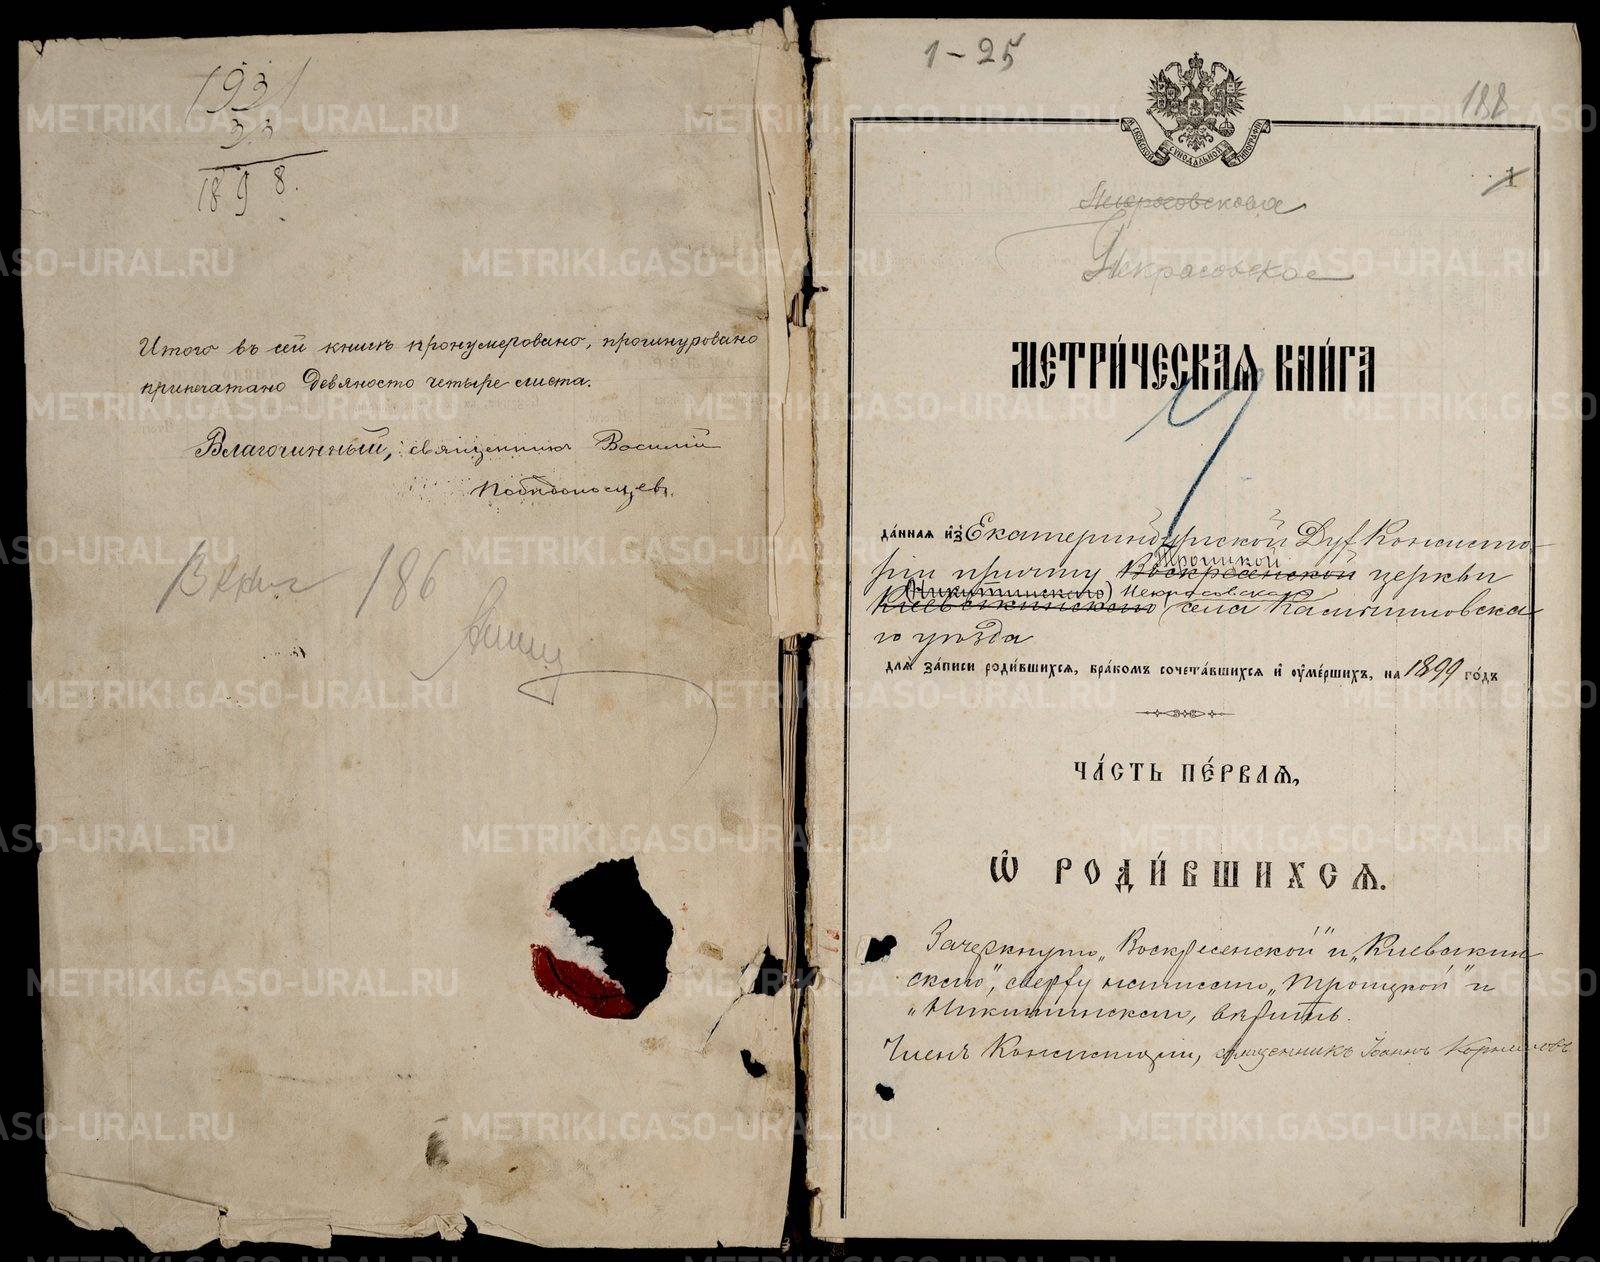 193
33
1898.
Итого въ сей книгѣ пронумеровано, прошнуровано
припечатано девяносто четыре листа.
Благочинный, священникъ Василій
Побѣдоносцевъ.
186
1-25
188
1
СИНОДАЛЬНОЙ ТИПОГРАФІИ
Некрасовское
МЕТРИ́ЧЕСКАѦ КНИ́ГА
да́ннаѧ и҆з̾ Екатеринбургской Дух Консисто-
ріи причту Воскресенской Троицкой церкви
Киевскинскаго (Никитинскаго) Некрасовскаго села Камышловска-
го уѣзда
длѧ̀ за́писи роди́вшихсѧ, бра́комъ сочета́вшихсѧ и҆ ᲂу҆ме́ршихъ, на 1899 го́дъ
ЧА́СТЬ ПЕ́РВАѦ,
Ѽ РОДИ́ВШИХСѦ.
Зачеркнуто „Воскресенской" и „Киевскин
скаго", сверху написано „Троицкой" и
„Никитинскаго, вѣрить.
Членъ Консисторіи, священникъ Іоаннъ
METRIKI.GASO-URAL.RU